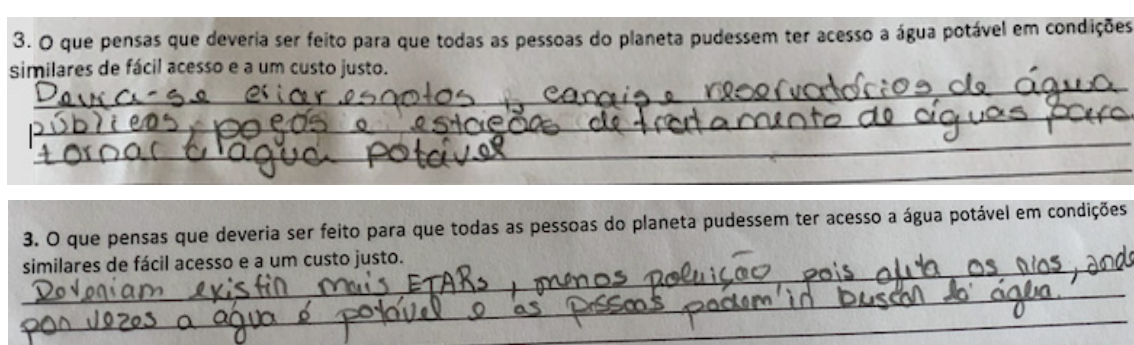 3. O que pensas que deveria ser feito para que todas as pessoas do planeta pudessem ter acesso a água potável em condições
similares de fácil acesso e a um custo justo.
Devia-se criar esgotos, canais e reservatórios de água
públicos, poços e estações de tratamento de águas para
tornar a água potável
3. O que pensas que deveria ser feito para que todas as pessoas do planeta pudessem ter acesso a água potável em condições
similares de fácil acesso e a um custo justo.
Deveriam existir mais ETARs, menos poluição pois afeta os rios, onde
por vezes a agua é potável e as pessoas podem ir buscar lá água.